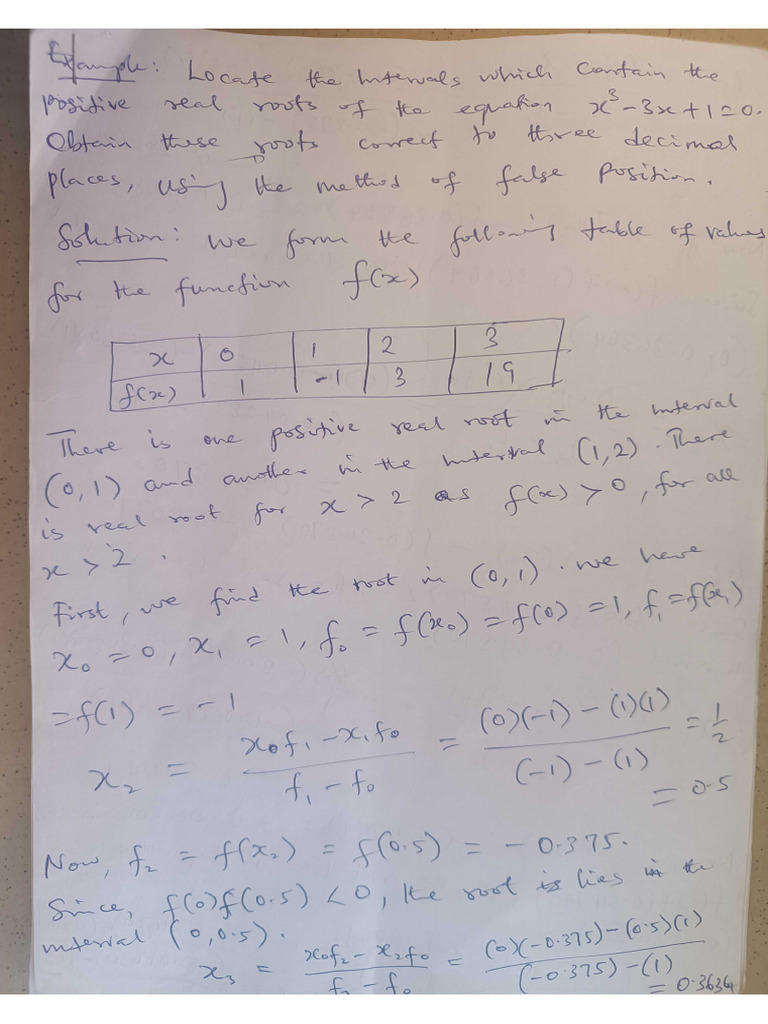 Example: Locate the Intervals which contain the
positive real roots of the equation x³-3x+1=0.
Obtain these roots correct to three decimal
places, using the method of false position.
Solution: We form the following table of values
for the function f(x)
x 0 1 2 3
f(x) 1 -1 3 19
There is one positive real root in the interval
(0,1) and another in the interval (1,2). There
is real root for x > 2 as f(x) > 0, for all
x > 2.
First, we find the root in (0,1). we have
x₀ = 0, x₁ = 1, f₀ = f(x₀) = f(0) = 1, f₁ = f(x₁)
= f(1) = -1
x₂ = (x₀f₁ - x₁f₀)/(f₁ - f₀) = ((0)(-1) - (1)(1))/((-1) - (1)) = 1/2
= 0.5
Now, f₂ = f(x₂) = f(0.5) = -0.375.
Since, f(0)f(0.5) < 0, the root lies in the
interval (0,0.5).
x₃ = (x₀f₂ - x₂f₀)/(f₂ - f₀) = ((0)(-0.375) - (0.5)(1))/((-0.375) - (1))
= 0.3636